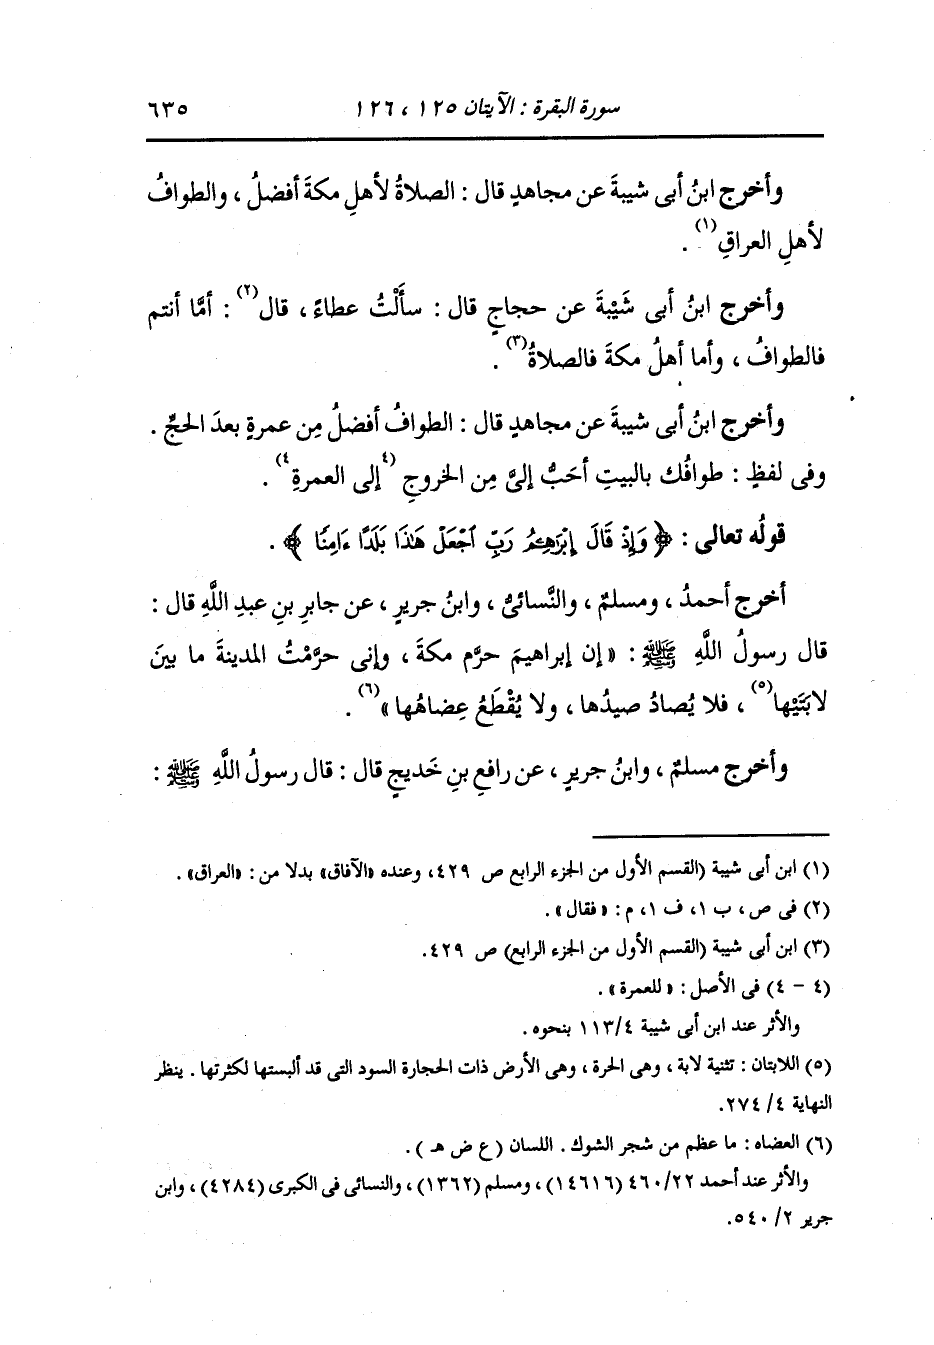 سورة البقرة : الآيتان ١٢٥ ، ١٢٦ ٦٣٥
وأخرج ابنُ أبى شيبةَ عن مجاهدٍ قال : الصلاةُ لأهلِ مكةَ أفضلُ ، والطوافُ
لأهلِ العراقِ(١) .
وأخرج ابنُ أبى شَيْبةَ عن حجاجٍ قال : سأَلْتُ عطاءً ، قال(٢) : أمَّا أنتم
فالطوافُ ، وأما أهلُ مكةَ فالصلاةُ(٣) .
وأخرج ابنُ أبى شيبةَ عن مجاهدٍ قال : الطوافُ أفضلُ مِن عمرةٍ بعدَ الحجِّ .
وفى لفظٍ : طوافُك بالبيتِ أحَبُّ إلىَّ مِن الخروجِ (٤إلى العمرةِ٤) .
قولُه تعالى : ﴿ وَإِذْ قَالَ إِبْرَٰهِـۧمُ رَبِّ ٱجْعَلْ هَـٰذَا بَلَدًا ءَامِنًا ﴾ .
أخرج أحمدُ ، ومسلمٌ ، والنَّسائىُّ ، وابنُ جريرٍ ، عن جابرِ بنِ عبدِ اللَّهِ قال :
قال رسولُ اللَّهِ ﷺ : « إن إبراهيمَ حرَّم مكةَ ، وإنى حرَّمْتُ المدينةَ ما بينَ
لابَتَيْها(٥) ، فلا يُصادُ صيدُها ، ولا يُقْطَعُ عِضاهُها »(٦) .
وأخرج مسلمٌ ، وابنُ جريرٍ ، عن رافعِ بنِ خَديجٍ قال : قال رسولُ اللَّهِ ﷺ :
(١) ابن أبى شيبة (القسم الأول من الجزء الرابع ص ٤٢٩، وعنده «الآفاق» بدلا من : «العراق» .
(٢) فى ص ، ب ١، ف ١، م : « فقال » .
(٣) ابن أبى شيبة (القسم الأول من الجزء الرابع) ص ٤٢٩.
(٤ - ٤) فى الأصل : « للعمرة » .
والأثر عند ابن أبى شيبة ١١٣/٤ بنحوه .
(٥) اللابتان : تثنية لابة ، وهى الحرة ، وهى الأرض ذات الحجارة السود التى قد ألبستها لكثرتها . ينظر
النهاية ٤/ ٢٧٤.
(٦) العضاه : ما عظم من شجر الشوك . اللسان ( ع ض هـ ) .
والأثر عند أحمد ٤٦٠/٢٢ (١٤٦١٦) ، ومسلم (١٣٦٢) ، والنسائى فى الكبرى (٤٢٨٤) ، وابن
جرير ٢/ ٥٤٠.